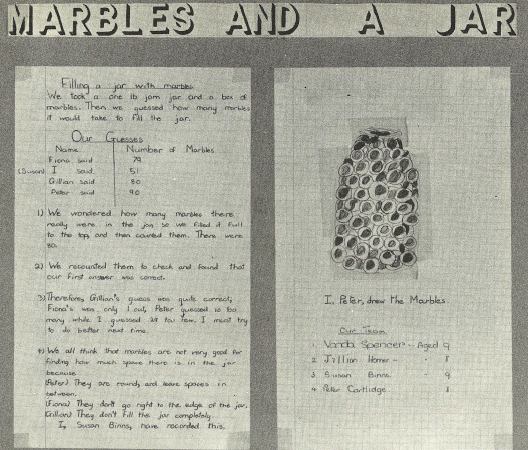 MARBLES AND A JAR
Filling a jar with marbles
We took a one lb jam jar and a box of
marbles. Then we guessed how many marbles
it would take to fill the jar.
Our Guesses
Name Number of Marbles
Fiona said 79
(Susan) I said 51
Gillian said 80
Peter said 90
1) We wondered how many marbles there
really were in the jar, so we filled it full
to the top, and then counted them. There were
80.
2) We recounted them to check and found that
our first answer was correct.
3) Therefore, Gillian's guess was quite correct,
Fiona's was only 1 out, Peter guessed 10 too
many while I guessed 29 too few. I must try
to do better next time.
4) We all think that marbles are not very good for
finding how much space there is in the jar
because
(Peter) They are round, and leave spaces in
between.
(Fiona) They don't go right to the edge of the jar.
(Gillian) They don't fill the jar completely.
I, Susan Binns, have recorded this.
I, Peter, drew the Marbles
Our Team
1. Vanda Spencer - Aged 9
2. Jillian - 8
3. Susan Binns 9
4. Peter Cartlidge 8